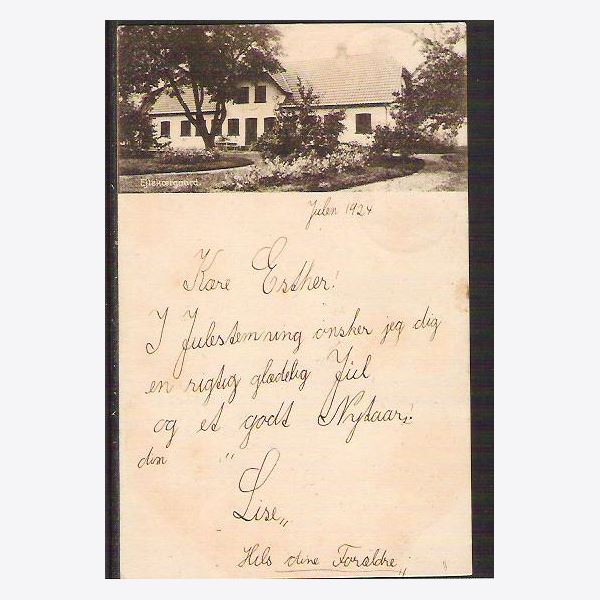 Elleskærgaard.
Julen 1924
Kære Esther!
I Julestemning ønsker jeg dig
en rigtig glædelig Jul
og et godt Nytaar!
din "
Lise„
Hils dine Forældre„